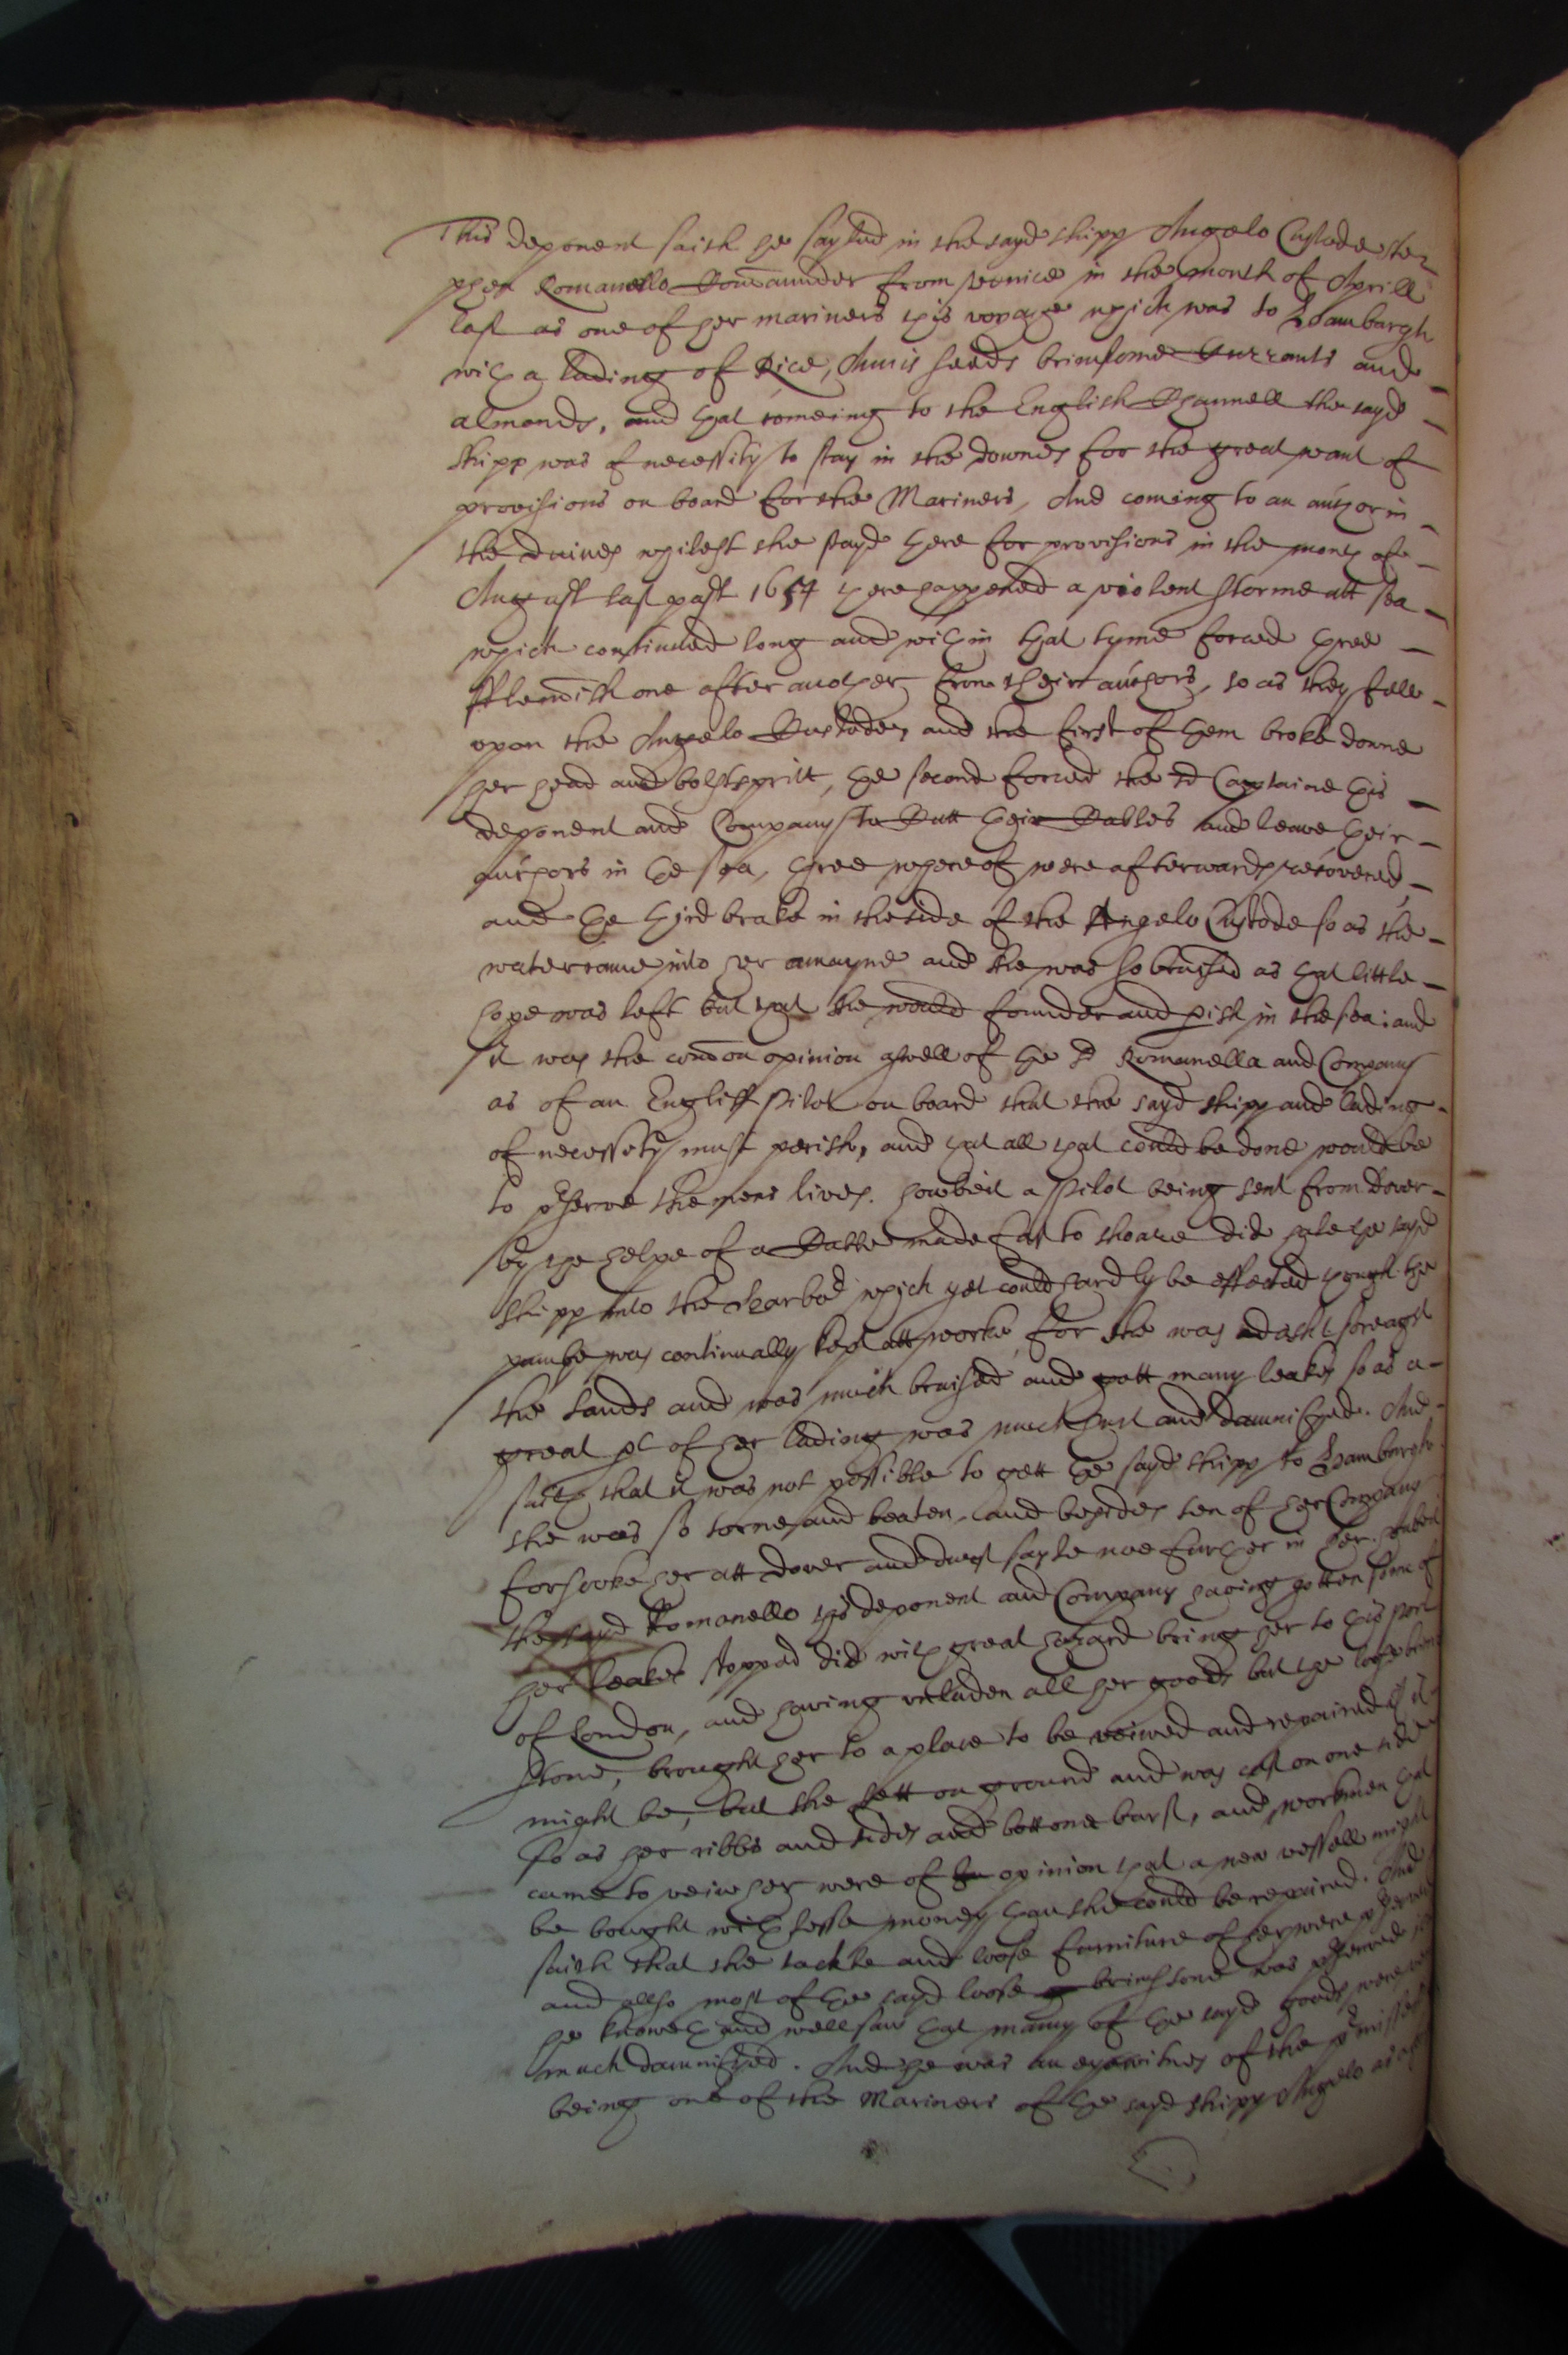 This deponent saith he sayled in the sayd shipp Angelo Custode Ste=
phen Romanello Commaunder from Vennice in the month of Aprill
last as one of her mariners this voyage which was to Hamburgh
with a lading of Rice, Annis seeds brimstome Currants and
almonds, and that comeing to the English Channell the sayd
shipp was of necessity to stay in the downes for the great want of
provisions on board for the Mariners, And coming to an anchor in
the duines whilest she stayd there for provisions in the month of
August last past 1654 there happened a violent storme att sea
which continued long and within that tyme forced three
fflemish one after another from their anchors, so as they fell
upon the Angelo Custode, and the first of them broke downe
her head and boltspritt, the second forced the sd Captaine this
deponent and Company to Cutt their Cables and leave their
anchors in the sea, three whereof were afterwards recovered,
and the third brake in the side of the Angelo Custode so as the
water came into her amayne and she was so bruised as that little
hope was left but that she would founder and pish in the sea; and
it was the comon opinion aswell of the sd Romanella and Company
as of an English Pilot on board that the sayd shipp and lading
of necessety must perish, and that all that could be done would be
to pserve the mens lives. howbeit a Pilot being sent from Dover
by the helpe of a Cable made fast to shoare did hale the sayd
shipp into the harbor which yet could hardly be effected though the
pumpe was continually kept att worke, for she was dasht soe agst
the sands and was much bruised and gott many leakes so as a
great pt of her lading was much hurt and damnifyed. And
saith that it was not possible to gett the sayd shipp to Hamburgh
she was so torne and beaten, and besides ten of her Company
forsooke her att dover and durst sayle noe further in her.
the sayd Romanello this deponent and Company having gotten some of
her leakes stopped did with great hazard bring her to this port
of London, and having unladen all her goods but the loose brim
stone, brought her to a place to be veiwed and repaired if it
might be, but she sett on ground and was cast on one side
so as her ribbs and sides and bottome burst, and workmen that
came to veiw her were of opinion that a new vessell might
be bought with lesse money than she could be repaired. And
saith that the tackle and loose furniture of her were pserved
and allso most of the sayd loose brimstone was pserved
he knoweth and well saw that many of the sayd goods were
much damnifyed. And he was an eyewitnes of the pmisses
being one of the Mariners of the sayd shipp Angelo as